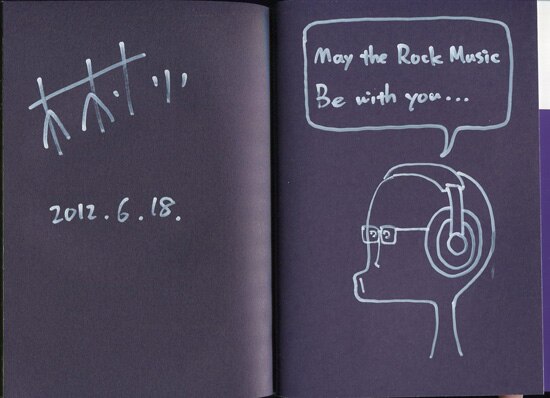 2012.6.18.
May the Rock Music
Be with you...